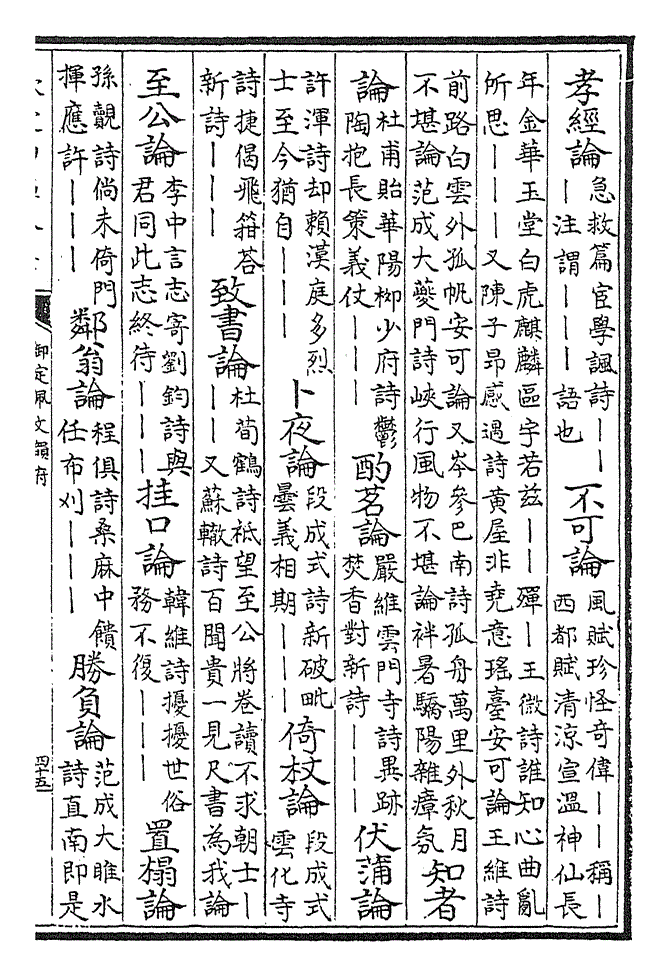 孝經論
急救篇宦學諷詩丨丨
丨注謂丨丨丨語也
不可論
風賦珍怪奇偉丨丨稱丨
西都賦清涼宣溫神仙長
年金華玉堂白虎麒麟區宇若茲丨丨殫丨王微詩誰知心曲亂
所思丨丨丨又陳子昂感遇詩黃屋非堯意瑤臺安可論王維詩
前路白雲外孤帆安可論又岑參巴南詩孤舟萬里外秋月
不堪論范成大夔門詩峽行風物不堪論袢暑驕陽雜瘴氛
知者
論
杜甫貽華陽柳少府詩鬱
陶抱長策義仗丨丨丨
酌茗論
嚴維雲門寺詩異跡
焚香對新詩丨丨丨
伏蒲論
許渾詩却賴漢庭多烈
士至今猶自丨丨丨
卜夜論
段成式詩新破毗
曇義相期丨丨丨
倚杖論
段成式
雲化寺
詩捷偈飛箝答
新詩丨丨丨
致書論
杜荀鶴詩祗望至公將卷讀不求朝士丨
丨丨又蘇轍詩百聞貴一見尺書為我論
至公論
李中言志寄劉鈞詩與
君同此志終待丨丨丨
挂口論
韓維詩擾擾世俗
務不復丨丨丨
置榻論
孫覿詩倘未倚門
揮應許丨丨丨
鄰翁論
程俱詩桑麻中饋
任布刈丨丨丨
勝負論
范成大睢水
詩直南即是
御定佩文韻府
四十五